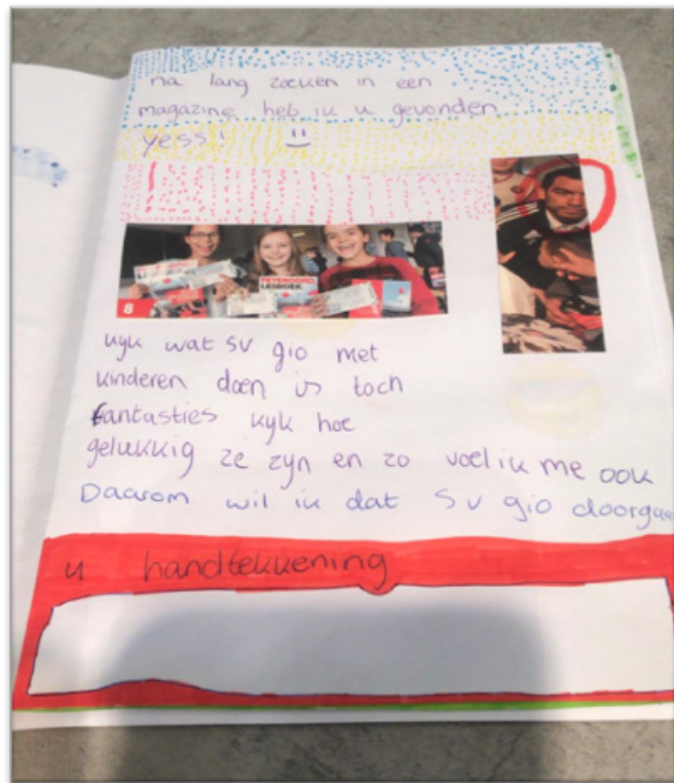 na lang zoeken in een
magazine heb ik u gevonden
yess!
8
FEYENOORD
LESBOEK
kyk wat sv gio met
kinderen doen is toch
fantasties kyk hoe
gelukkig ze zyn en zo voel ik me ook
Daarom wil ik dat sv gio doorgaa
u handtekkening